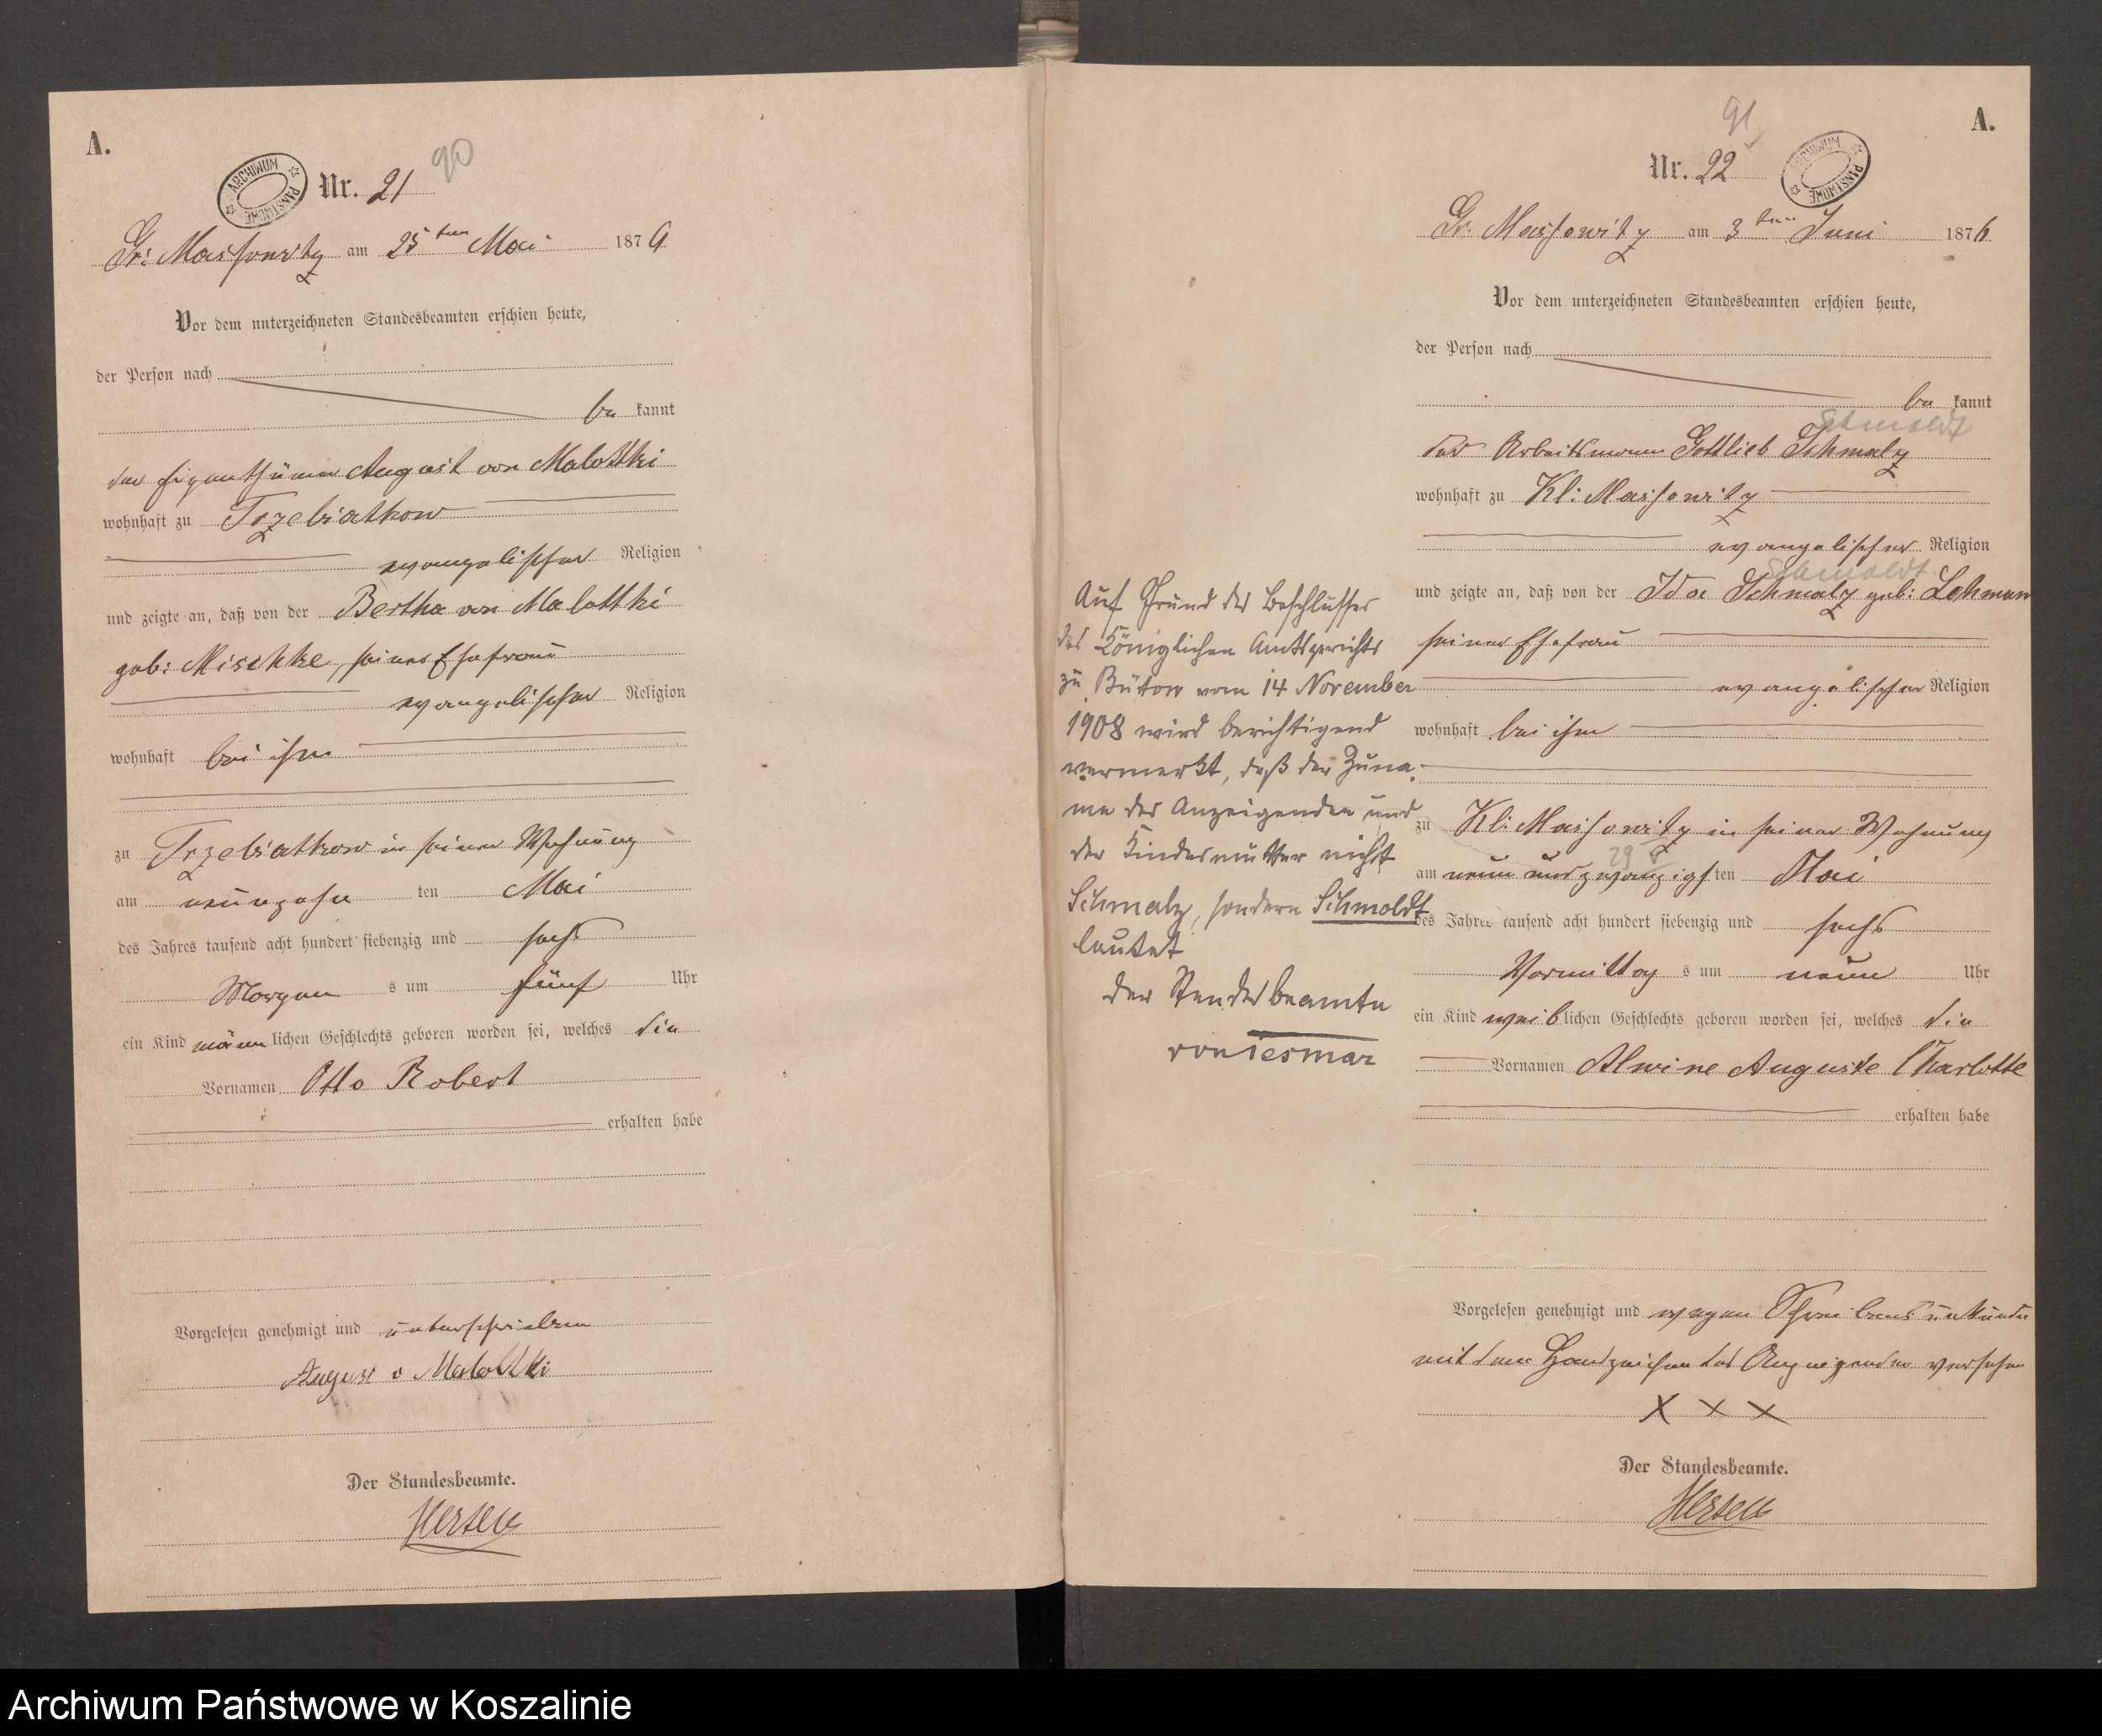 A.
ARCHIWUM PAŃSTWOWE
Nr. 21
90
Gr: Massowitz am 25ten Mai 1876
Vor dem unterzeichneten Standesbeamten erschien heute,
der Person nach
be kannt
der Eigenthümer August von Malottki
wohnhaft zu Trzebiatkow
evangelischer Religion
und zeigte an, daß von der Bertha von Malottki
geb: Mischke, seiner Ehefrau
evangelischer Religion
wohnhaft bei ihm
zu Trzebiatkow in seiner Wohnung
am neunzehn ten Mai
des Jahres tausend acht hundert siebenzig und sechs
Morgen s um fünf Uhr
ein Kind männ lichen Geschlechts geboren worden sei, welches die
Vornamen Otto Robert
erhalten habe
Vorgelesen genehmigt und unterschrieben
August v Malottki
Der Standesbeamte.
A.
91
Nr. 22
ARCHIWUM PAŃSTWOWE
Gr. Massowitz am 3ten Juni 1876
Vor dem unterzeichneten Standesbeamten erschien heute,
der Person nach
be kannt
Schmoldt
der Arbeitsmann Gottlieb Schmalz
wohnhaft zu Kl: Massowitz
evangelischer Religion
Schmoldt
und zeigte an, daß von der Ida Schmalz geb: Lehmann
seiner Ehefrau
evangelischer Religion
wohnhaft bei ihm
zu Kl: Massowitz in seiner Wohnung
29
am neun und zwanzigs ten Mai
des Jahres tausend acht hundert siebenzig und sechs
Vormittag s um neun Uhr
ein Kind weib lichen Geschlechts geboren worden sei, welches die
Vornamen Alwine Auguste Charlotte
erhalten habe
Vorgelesen genehmigt und wegen Schreibensunkunde
mit dem Handzeichen des Anzeigenden versehen
X X X
Der Standesbeamte.
Auf Grund des Beschlusses
des Königlichen Amtsgerichts
zu Bütow vom 14 November
1908 wird berichtigend
vermerkt, daß der Zuna-
me des Anzeigenden und
der Kindesmutter nicht
Schmalz, sondern Schmoldt
lautet
Der Standesbeamte
von Tesmar
Archiwum Państwowe w Koszalinie